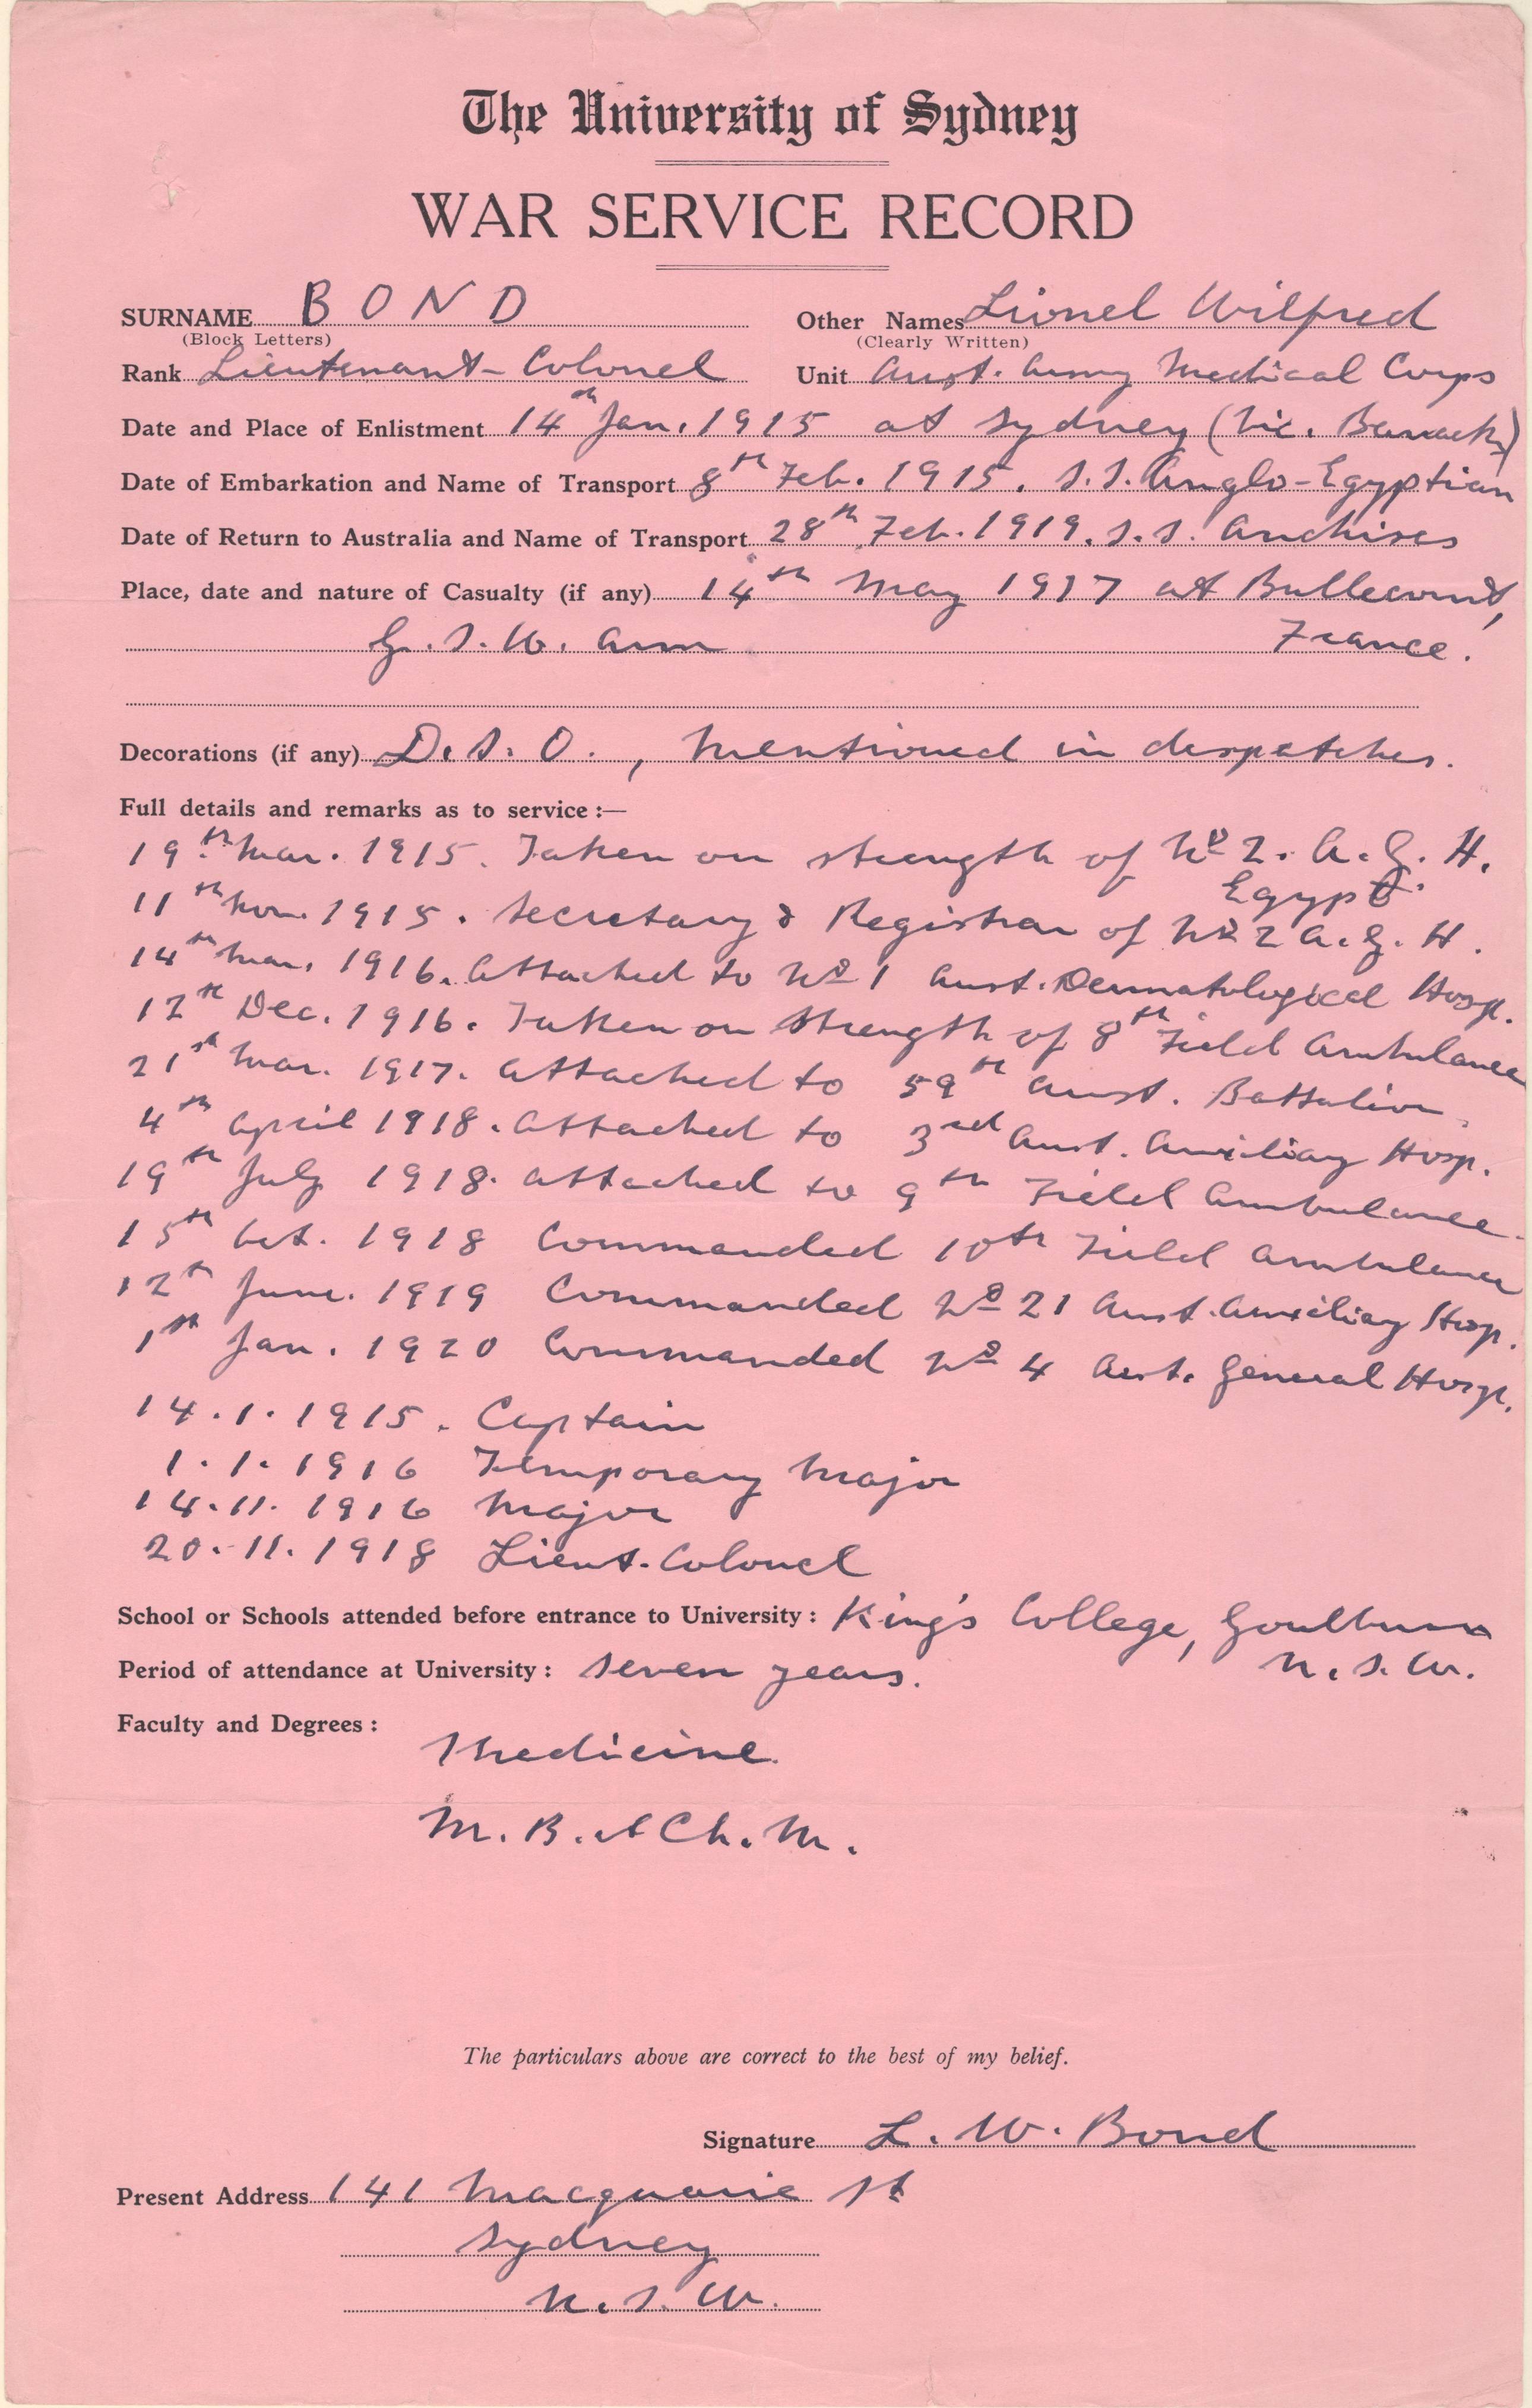 The University of Sydney
WAR SERVICE RECORD
SURNAME BOND Other Names Lionel Wilfred
(Block Letters) (Clearly Written)
Rank Lieutenant-Colonel Unit Aust. Army Medical Corps
Date and Place of Enlistment 14th Jan. 1915 at Sydney (Vic. Barracks)
Date of Embarkation and Name of Transport 8th Feb. 1915. S.S. Anglo-Egyptian
Date of Return to Australia and Name of Transport 28th Feb. 1919. S.S. Anchises
Place, date and nature of Casualty (if any) 14th May 1917 at Bullecourt,
G.S.W. arm France.
Decorations (if any) D.S.O., Mentioned in despatches.
Full details and remarks as to service :—
19th Mar. 1915. Taken on strength of No 2. A.G.H.
Egypt.
11th Nov. 1915. Secretary & Registrar of No 2 A.G.H.
14th Mar. 1916. Attached to No 1 Aust. Dermatological Hosp.
12th Dec. 1916. Taken on strength of 8th Field Ambulance
21st Mar. 1917. Attached to 59th Aust. Battalion
4th April 1918. Attached to 3rd Aust. Auxiliary Hosp.
19th July 1918. Attached to 9th Field Ambulance.
15th Oct. 1918 Commanded 10th Field Ambulance
12th June. 1919 Commanded No 21 Aust. Auxiliary Hosp.
1st Jan. 1920 Commanded No 4 Aust. General Hosp.
14.1.1915. Captain
1.1.1916 Temporary Major
14.11.1916 Major
20.11.1918 Lieut. Colonel
School or Schools attended before entrance to University : King's College, Goulburn
N.S.W.
Period of attendance at University : Seven years.
Faculty and Degrees :
Medicine.
M.B. et Ch.M.
The particulars above are correct to the best of my belief.
Signature L. W. Bond
Present Address 141 Macquarie St
Sydney
N.S.W.